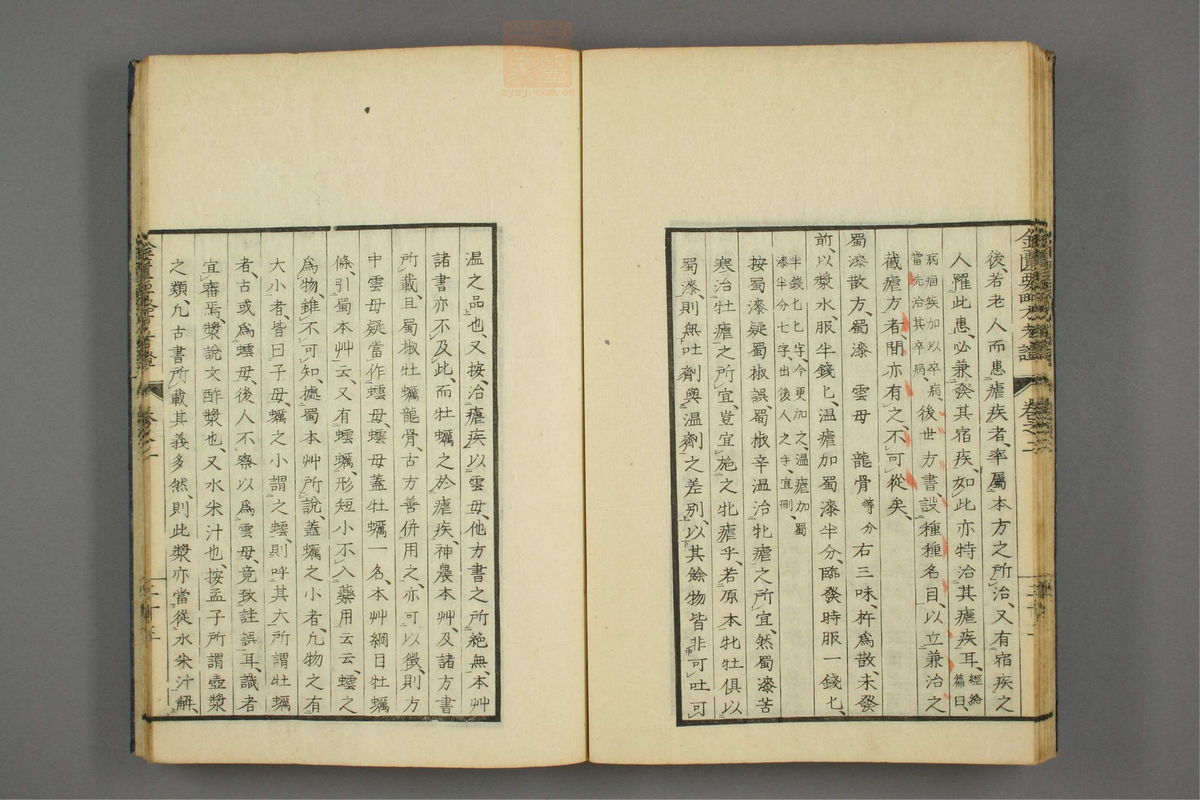 後、若老人而患瘧疾者、率屬本方之所治、又有宿疾之
人、罹此患、必兼發其宿疾、如此亦特治其瘧疾耳、經絡篇曰、
病痼疾加以卒病、當先治其卒病、後世方書、設種種名目、以立兼治之
截瘧方者、間亦有之、不可從矣、
蜀漆散方、蜀漆 雲母 龍骨等分右三味、杵爲散、未發
前、以漿水、服半錢匕、溫瘧加蜀漆半分、臨發時服一錢匕、
半錢匕匕字、今更加之、溫瘧加蜀漆半分七字、出後人之手、宜刪、
按蜀漆疑蜀椒誤、蜀椒辛溫治牝瘧之所宜、然蜀漆苦
寒治牡瘧之所宜、豈宜施之牝瘧乎、若原本牝牡俱以
蜀漆、則無吐劑與溫劑之差別、以其餘物皆非可吐可
溫之品也、又按、治瘧疾以雲母、他方書之所絶無、本艸
諸書亦不及此、而牡蠣之於瘧疾、神農本艸、及諸方書
所載、且蜀椒牡蠣龍骨、古方善併用之、亦可以徵、則方
中雲母疑當作蝷母、蝷母蓋牡蠣一名、本艸綱目牡蠣
條、引蜀本艸云、又有蝷蠣、形短小不入藥用云云、蝷之
爲物雖不可知、據蜀本艸所說、蓋蠣之小者、凡物之有
大小者、皆曰子母、蠣之小謂之蝷、則呼其大所謂牡蠣
者、古或爲蝷母、後人不察以爲雲母、竟致詿誤耳、識者
宜審焉、漿說文酢漿也、又水米汁也、按孟子所謂壺漿
之類、凡古書所載其義多然、則此漿亦當從水米汁解、